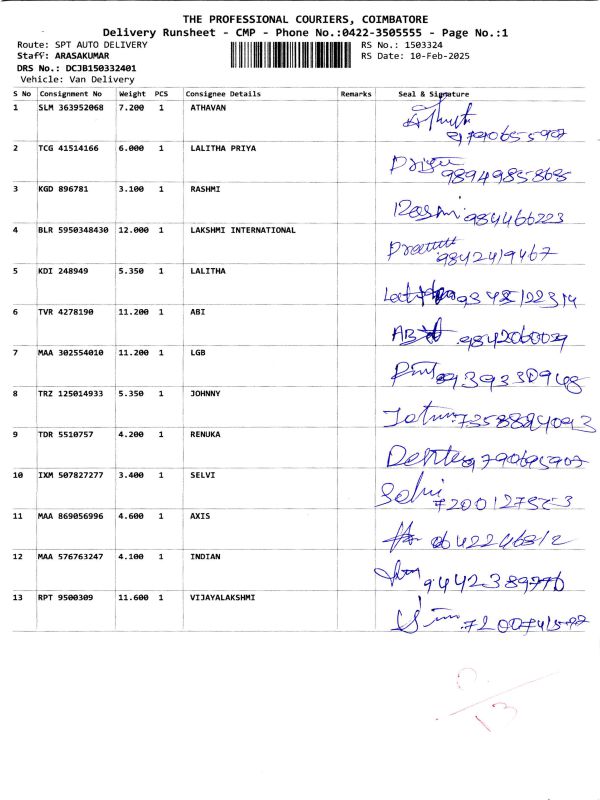 THE PROFESSIONAL COURIERS, COIMBATORE
Delivery Runsheet - CMP - Phone No.:0422-3505555 - Page No.:1
Route: SPT AUTO DELIVERY RS No.: 1503324
Staff: ARASAKUMAR RS Date: 10-Feb-2025
DRS No.: DCJB150332401
Vehicle: Van Delivery
S No Consignment No Weight PCS Consignee Details Remarks Seal & Signature
1 SLM 363952068 7.200 1 ATHAVAN
2 TCG 41514166 6.000 1 LALITHA PRIYA
9894985868
3 KGD 896781 3.100 1 RASHMI
Rashmi 984466223
4 BLR 5950348430 12.000 1 LAKSHMI INTERNATIONAL
9842419467
5 KDI 248949 5.350 1 LALITHA
6 TVR 4278190 11.200 1 ABI
9842060029
7 MAA 302554010 11.200 1 LGB
8 TRZ 125014933 5.350 1 JOHNNY
9 TDR 5510757 4.200 1 RENUKA
9790695907
10 IXM 507827277 3.400 1 SELVI
Selvi
11 MAA 869056996 4.600 1 AXIS
12 MAA 576763247 4.100 1 INDIAN
13 RPT 9500309 11.600 1 VIJAYALAKSHMI
13